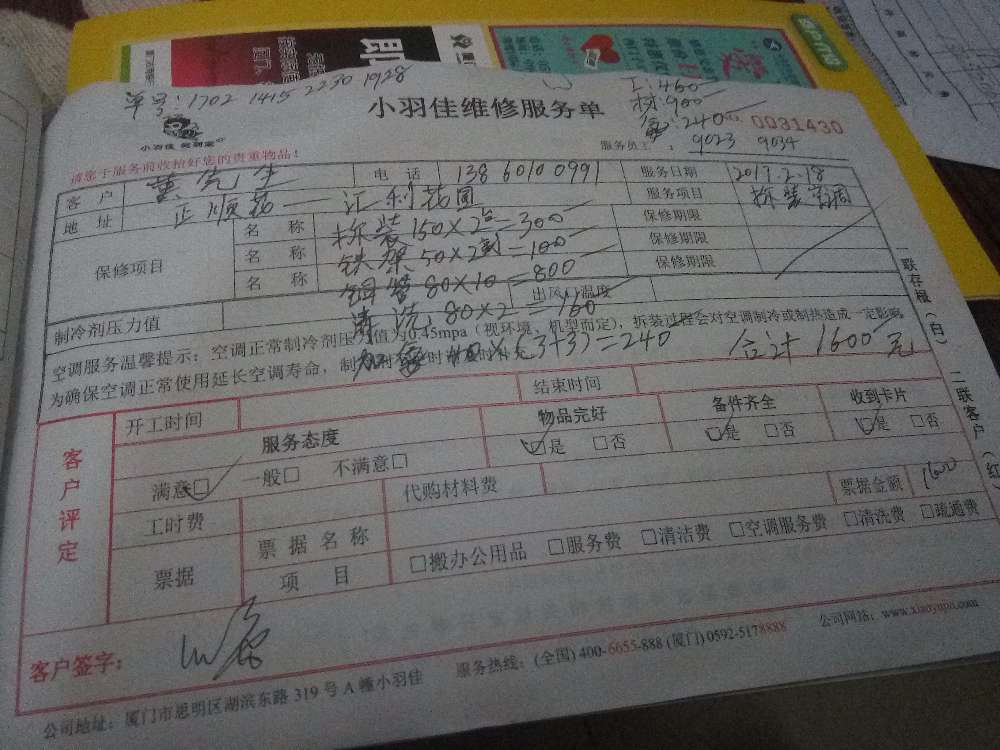 单号:1702 1415 2230 1928
工:460
材:900
氟:240
小羽佳维修服务单
0031430
小羽佳 笑到家
服务员工: 9023 9034
请您于服务前收拾好您的贵重物品!
客 户 黄先生 电 话 13860100991 服务日期 2017.2.18
地 址 正顺花— 汇利花园 服务项目 拆装空调
保修项目
名 称 拆装150×2台=300 保修期限
名 称 铁架50×2副=100 保修期限
名 称 铜管80×10=800 保修期限
出风口温度
制冷剂压力值 清洗:80×2=160
空调服务温馨提示:空调正常制冷剂压力值为0.45mpa(视环境、机型而定),拆装过程会对空调制冷或制热造成一定影响
为确保空调正常使用延长空调寿命,制
加氟 40×(3+3)=240 合计1600元
一联存根(白) 二联客户(红
客户评定
开工时间 结束时间
服务态度 物品完好 备件齐全 收到卡片
满意□ 一般□ 不满意□ □是 □否 □是 □否 □是 □否
工时费 代购材料费 票据金额 1600
票据 票据名称
项 目 □搬办公用品 □服务费 □清洁费 □空调服务费 □清洗费 □疏通费
客户签字:
公司地址:厦门市思明区湖滨东路319号A幢小羽佳 服务热线:(全国)400-6655-888 (厦门)0592-5178888 公司网站:www.xiaoyujia.com